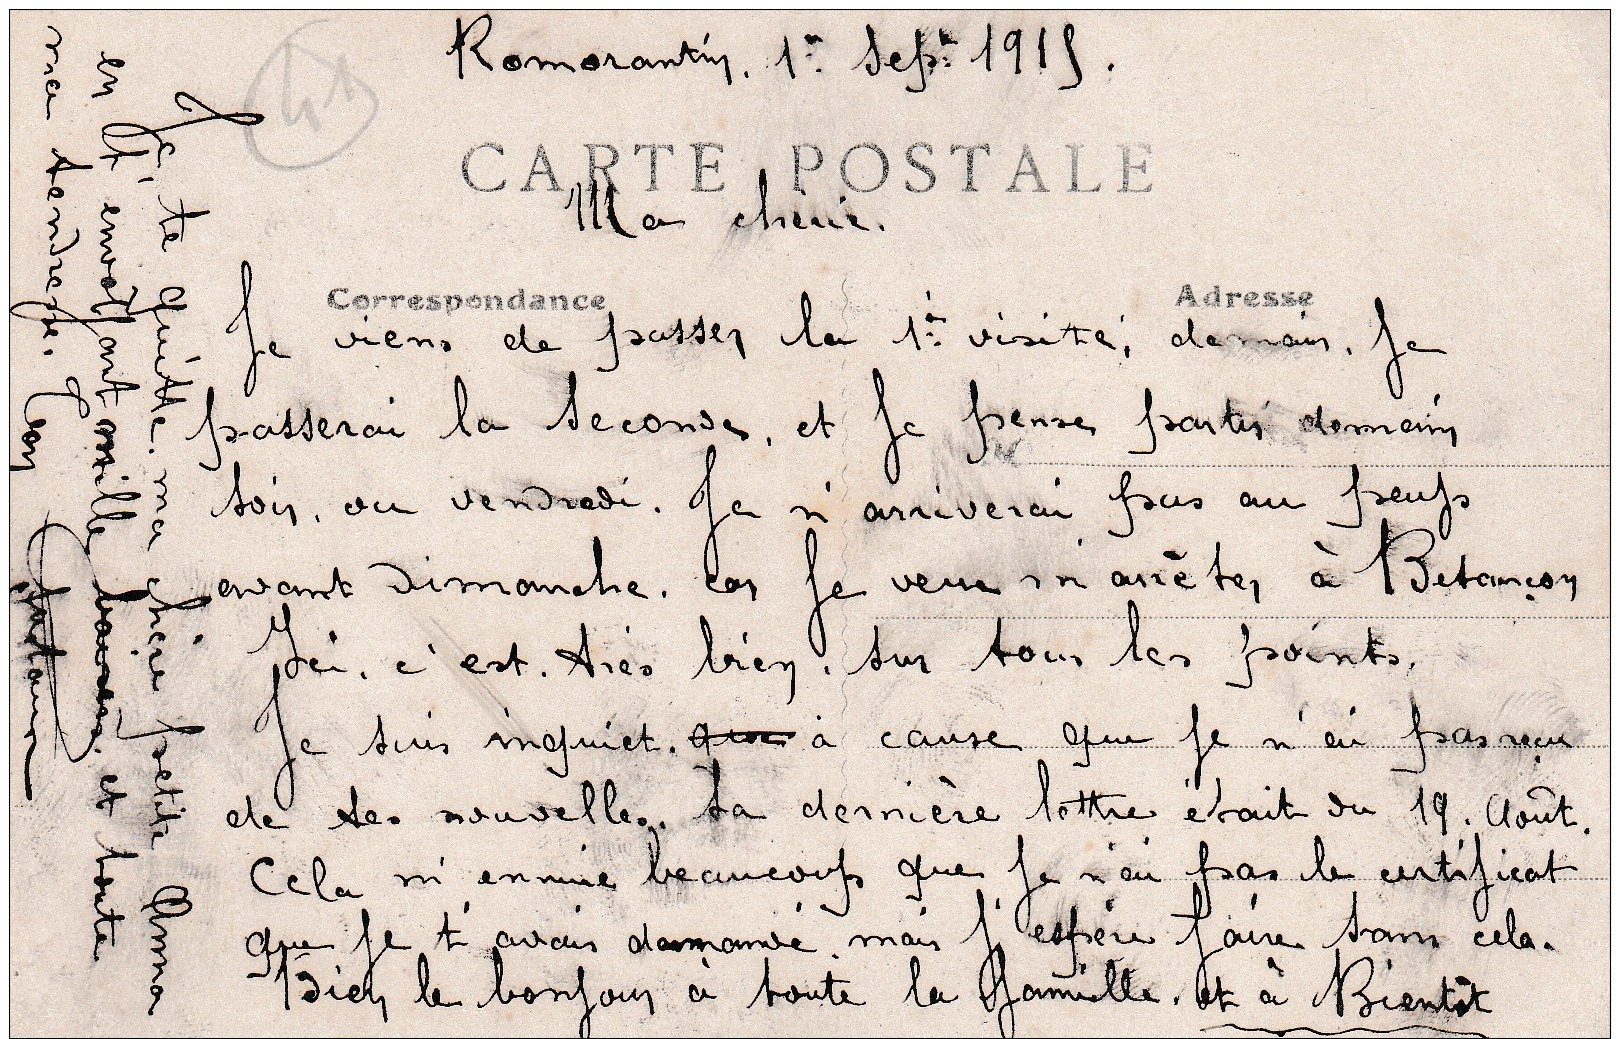 Romorantin. 1er Sept. 1915.
CARTE POSTALE
Ma chérie.
Correspondance
Adresse
Je viens de passer la 1ère visite, demain. Je
passerai la seconde, et je pense partir demain
soir, ou vendredi. Je n'arriverai pas au
avant Dimanche. car je veux m'arrêter à Besançon
Ici, c'est. très bien, sur tous les points.
Je suis inquiet. que à cause que je n'ai pas reçu
de tes nouvelles. ta dernière lettre était du 19. Août.
Cela m'ennuie beaucoup que je n'ai pas le certificat
que je t'avais demandé. mais j'espère faire sans cela.
Bien le bonjour à toute la famille. et à Bientôt
Je te quitte. ma chère petite Anna
en t'envoyant mille baisers. et toute
ma tendresse. Ton